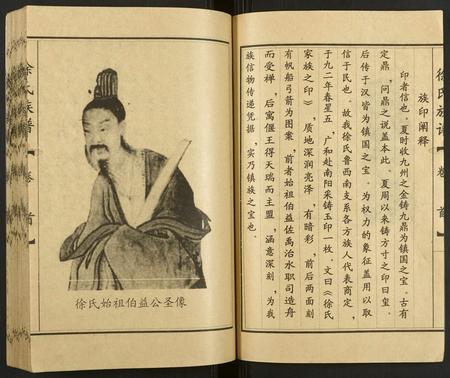 族印阐释
印者信也。夏时收九州之金铸九鼎为镇国之宝。古有
定鼎，问鼎之说盖本此。夏周以来铸方寸之印曰皇
后传于汉皆为镇国之宝。为权力的象征盖用以取
信于民也。故我徐氏鲁西南支系各方族人代表商定，
于九二年春星五，广和赴南阳采铸玉印一枚。文曰《徐氏
家族之印》，质地深润亮泽，有暗彩，前后两面刻
有帆船弓箭为图案，前者始祖伯益佐禹治水职司造舟
而受禅，后寓偃王得天瑞而主盟，涵意深刻，为我
族信物传递凭据，实乃镇族之宝也。
徐氏族谱
【卷首】
徐氏始祖伯益公圣像
徐氏族谱
【卷首】